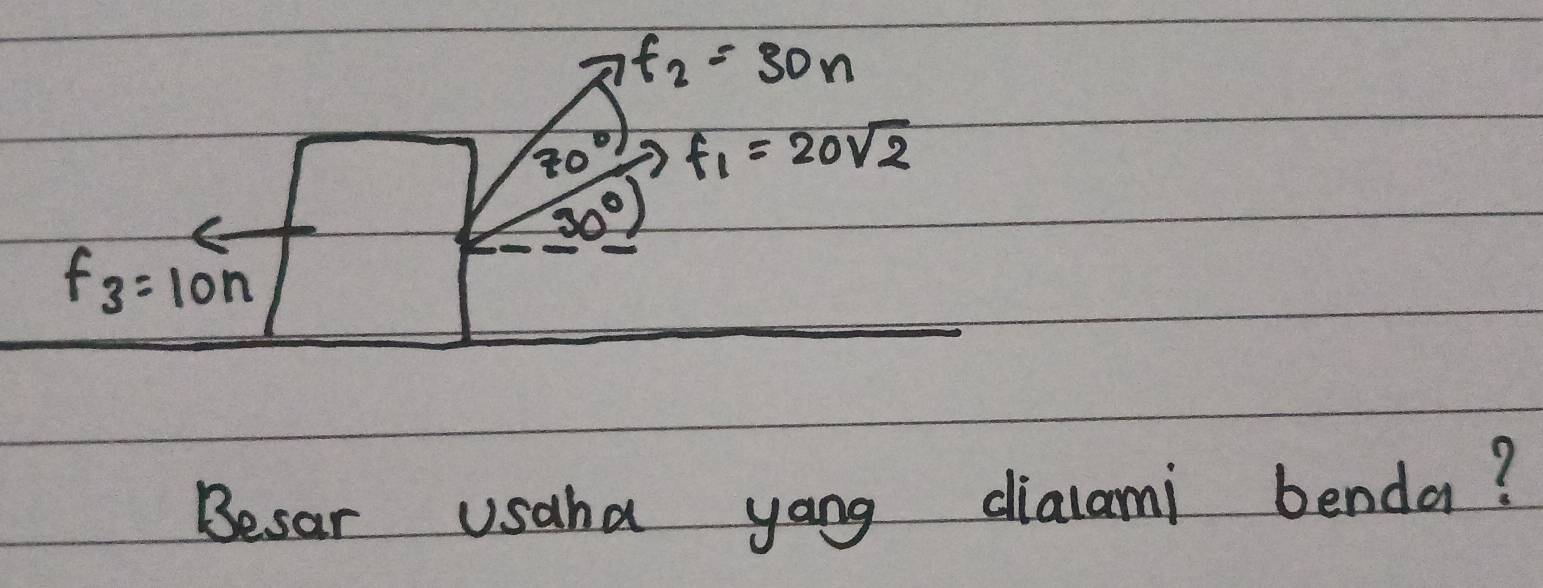 f₂ = 30n
70°
f₁ = 20√2
30°
f₃ = 10n
Besar usaha yang dialami benda?